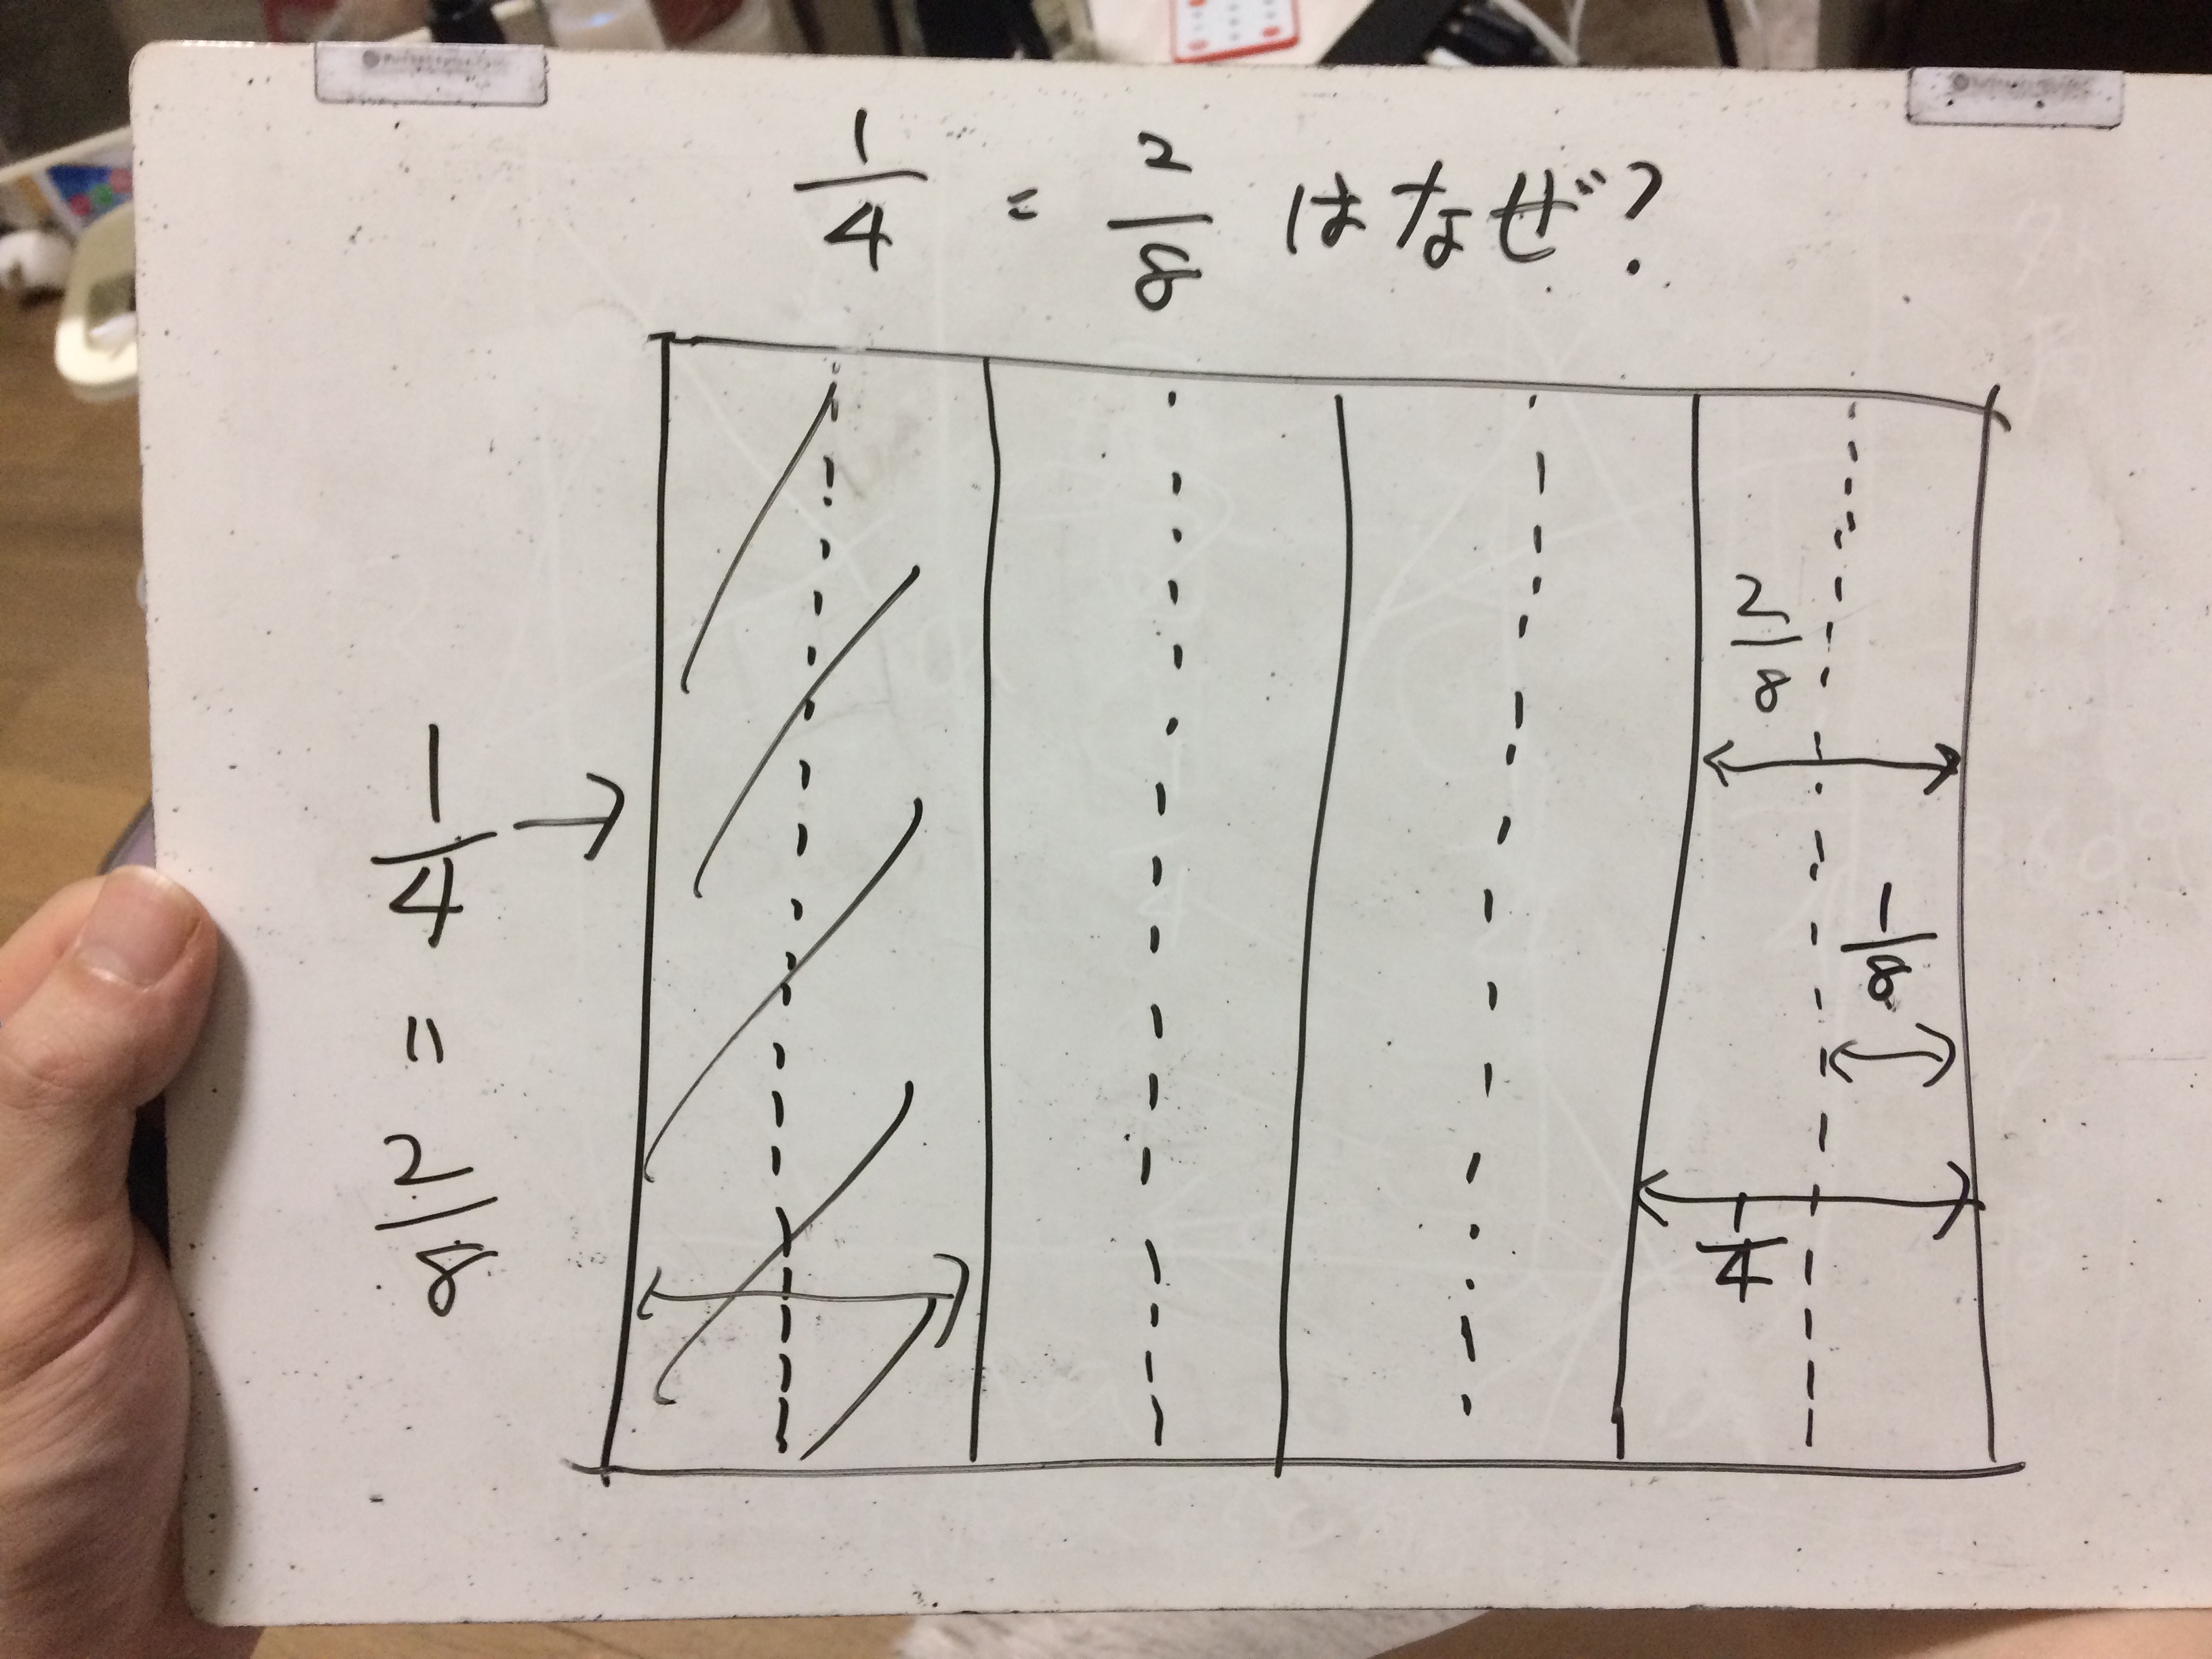 1/4 = 2/8 はなぜ?
1/4 → = 2/8
2/8
1/8
1/4